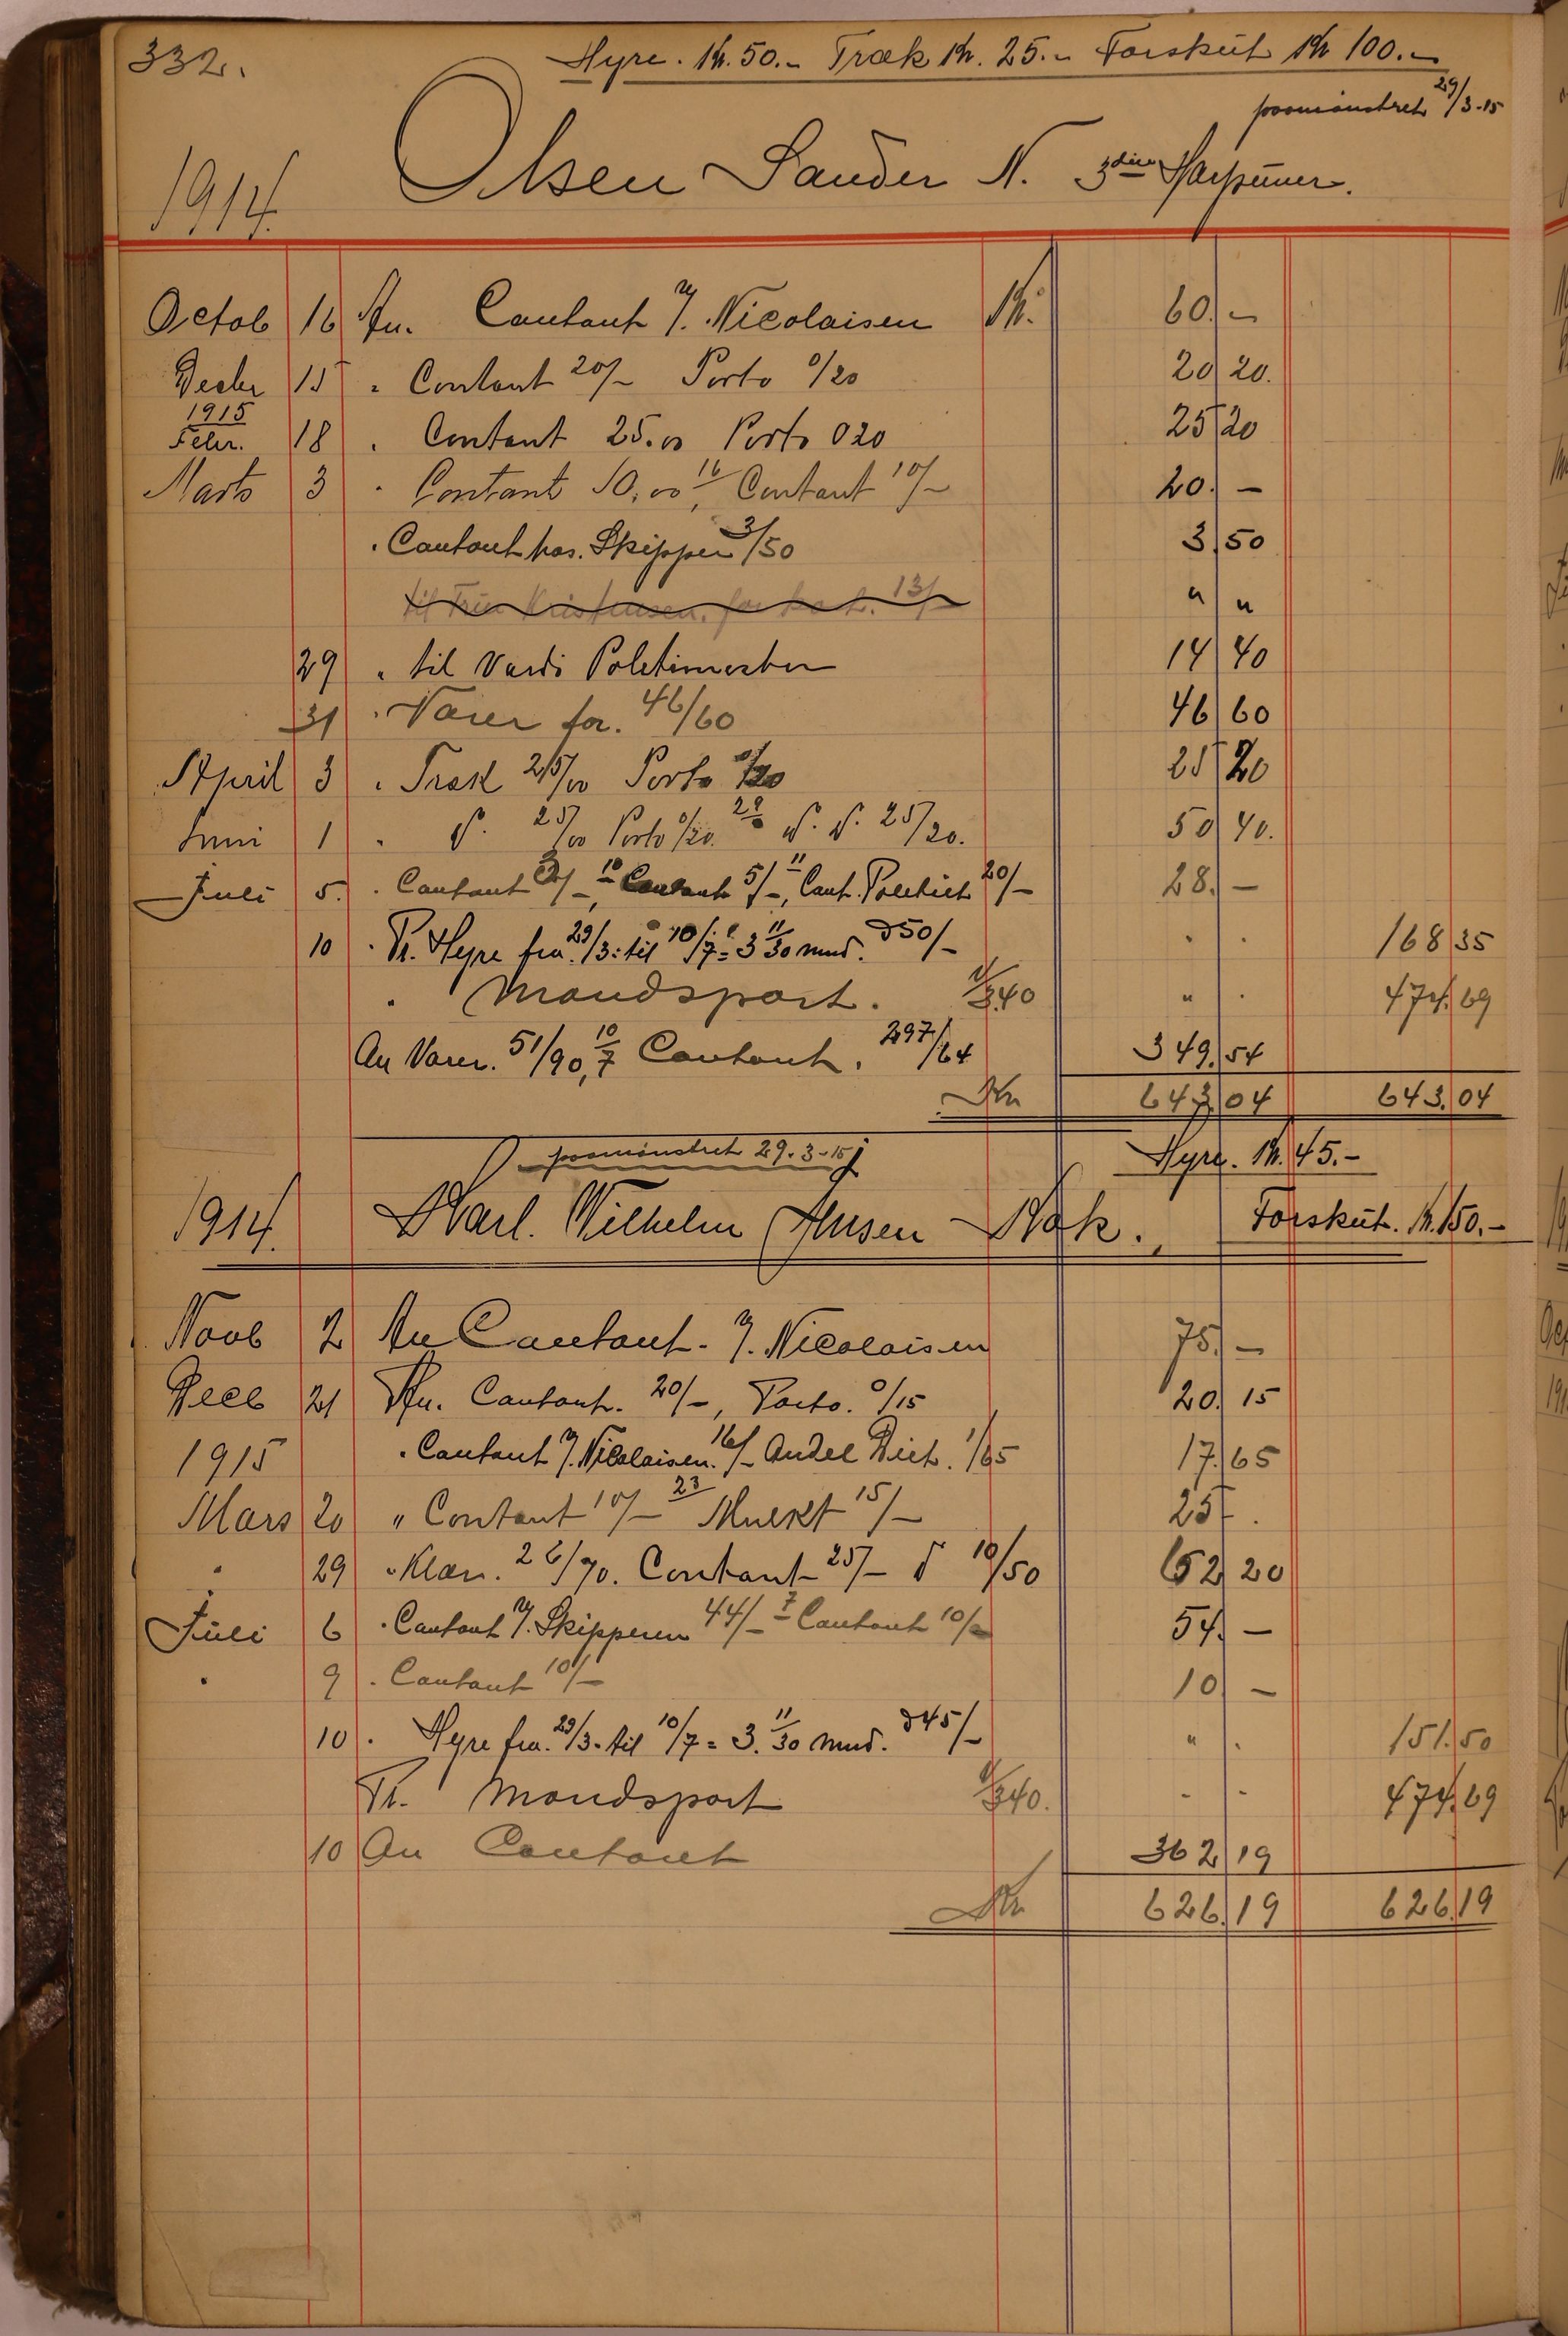 332.
Hyre. Kr. 50.- Træk Kr. 25.- Forskut Kr 100.-
paamönstret 29/3-15
1914. Olsen Sander N. 3die Harpuner.
Octob 16 An. Contant J. Nicolaisen Kr. 60.-
Decbr 15 " Contant 20/- Porto 0/20 20 20.
1915
Febr. 18 " Contant 25.00 Porto 020 25 20
Marts 3 " Contant 10,00 16/ Contant 10/- 20. -
" Contant hos. Skipper 3/50 3 50
" "
29 " til Vardö Poletimester 14 40
31 " Varer for. 46/60 46 60
April 3 " Træk 25/00 Porto 0/20 25 20
Juni 1 " d. 25/00 Porto 0/20. d. d. 25/20. 50 40.
Juli 5. " Contant 3/-, 10 Contant 5/-, 11 Cont. 20/- 28. -
10 " Pr. Hyre fra. 29/3. til 10/7 = 3 11/30 mnd. a 50/- " " 168 35
" Mandspart. 1/340 " " 474.69
An Varer. 51/90, 10/7 Contant. 297/64 349.54
Kr 643 04 643.04
paamönstret 29-3-15 Hyre. Kr. 45.-
1914. Karl. Wilhelm Jensen Kok. Forskut. Kr. 150.-
Novb 2 An Contant. J. Nicolaisen 75. -
Decb 21 An. Contant. 20/-, Porto. 0/15 20. 15
1915 " Contant J. Nicolaisen. 16/- Andel 1/65 17.65
Mars 20 " Contant 10/- 23 Mulkt 15/- 25 .
" 29 " Klær. 26/70. Contant 25/- d 10/50 62 20
Juli 6 " Contant J. Skipperen 44/- 7 Contant 10/- 54. -
" 9 " Contant 10/- 10 -
10 " Hyre fra. 29/3. til 10/7 = 3. 11/30 mnd. a 45/- " " 151.50
Pr. Mandspart 1/340. " " 474.69
10 An Contant 362 19
Kr 626.19 626.19